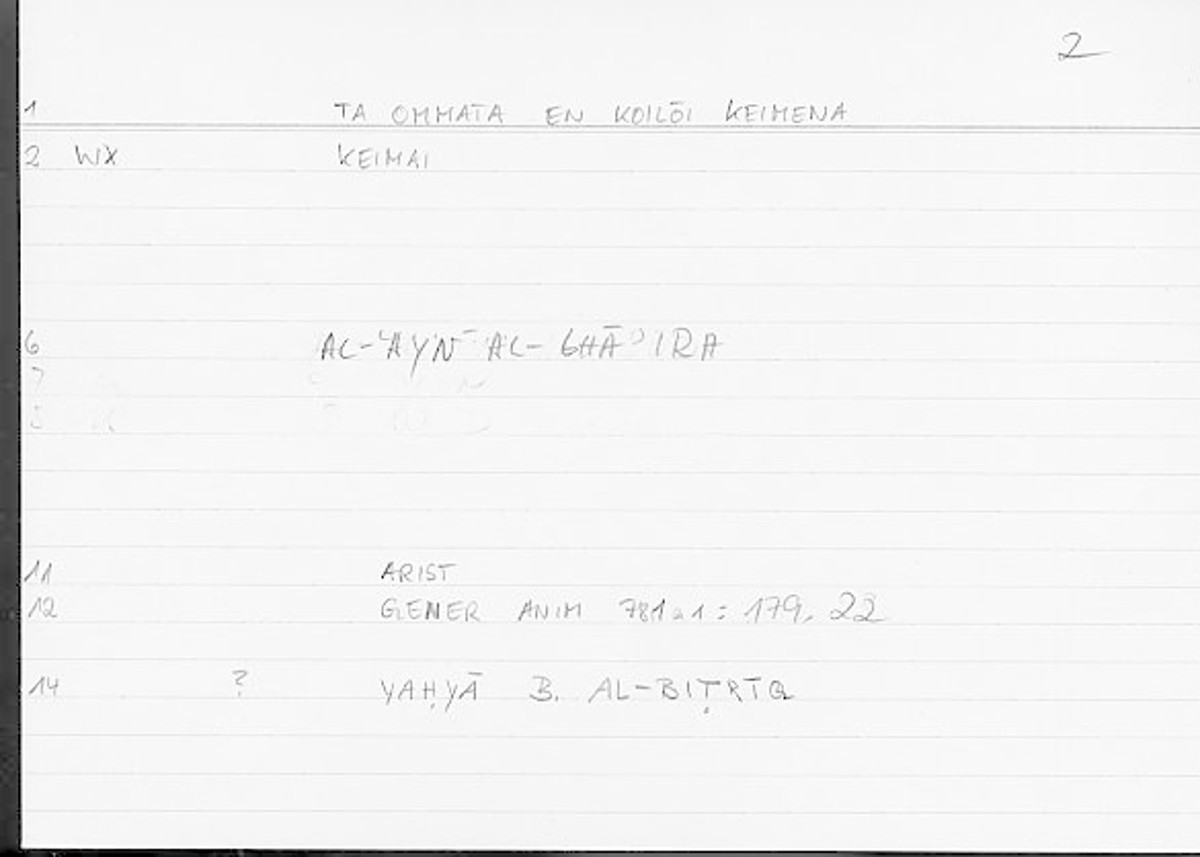 2
1 TA OMMATA EN KOILŌI KEIMENA
2 WX KEIMAI
6 AL-ʿAYN AL-GHĀʾIRA
7
11 ARIST
12 GENER ANIM 781a1 : 179, 22
14 ? YAḤYĀ B. AL-BIṬRĪQ